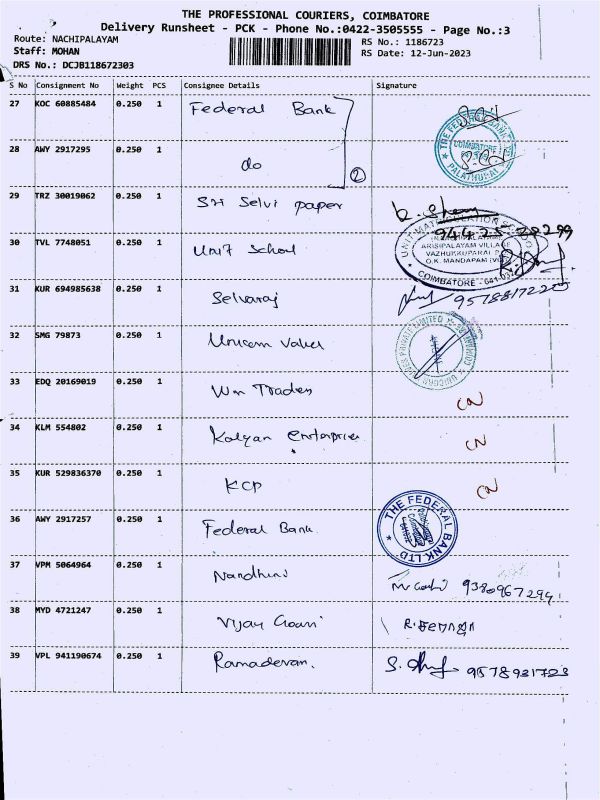 THE PROFESSIONAL COURIERS, COIMBATORE
Delivery Runsheet - PCK - Phone No.:0422-3505555 - Page No.:3
Route: NACHIPALAYAM
RS No.: 1186723
Staff: MOHAN
RS Date: 12-Jun-2023
DRS No.: DCJB118672303
S No Consignment No Weight PCS Consignee Details Signature
27 KOC 60885484 0.250 1 Federal Bank
28 AWY 2917295 0.250 1 do
2
THE FEDERAL BANK
COIMBATORE
29 TRZ 30019062 0.250 1 Sri Selvi paper
30 TVL 7748051 0.250 1 Unit School
ARISIPALAYAM VILLAGE
VAZHUKKUPARAI P.O
O.K. MANDAPAM (VIA)
COIMBATORE - 641 032
31 KUR 694985638 0.250 1 Selvaraj 9578817220
32 SMG 79873 0.250 1 Unicorn Valves
33 EDQ 20169019 0.250 1 Wm Traders CN
34 KLM 554802 0.250 1 Kalyan enterprises CN
35 KUR 529836370 0.250 1 KCP CN
36 AWY 2917257 0.250 1 Federal Bank
THE FEDERAL BANK LTD
37 VPM 5064964 0.250 1 Nandhini 9380967294
38 MYD 4721247 0.250 1 Vijay Gowri
39 VPL 941190674 0.250 1 Ramadevan. 9578931723